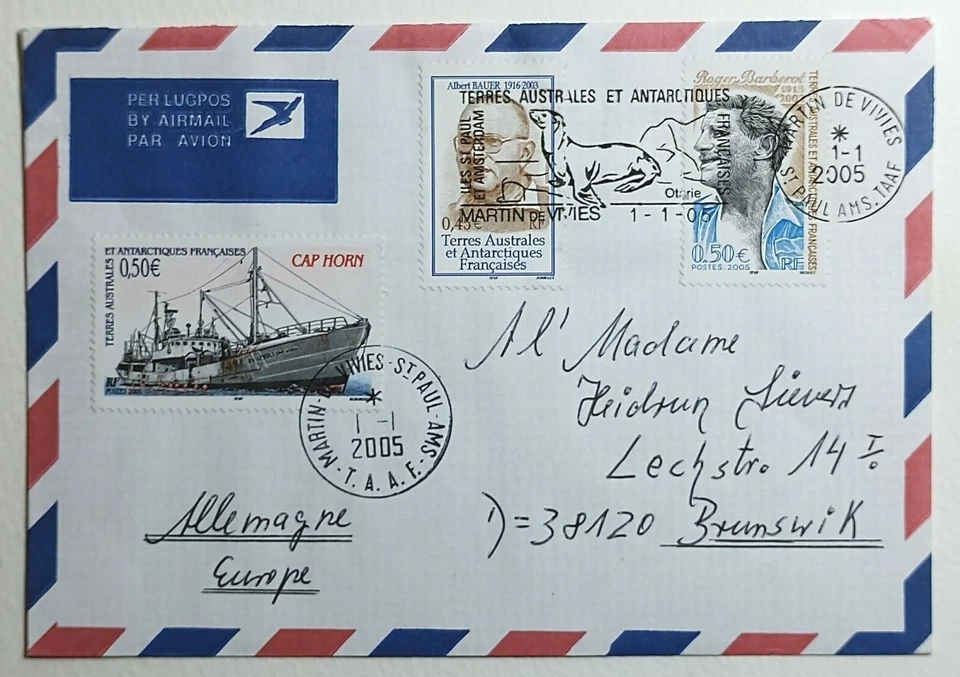 PER LUGPOS
BY AIRMAIL
PAR AVION
Albert BAUER 1916-2003
0,45€ RF
Terres Australes
et Antarctiques
Françaises
Roger Barberot
1915
TERRES AUSTRALES ET ANTARCTIQUES FRANÇAISES
0.50€
POSTES. 2005 RF
TERRES AUSTRALES ET ANTARCTIQUES
FRANÇAISES
ILES ST. PAUL
ET AMSTERDAM
Otarie
MARTIN DE VIVIES 1-1-05
MARTIN DE VIVIES
*
1-1
2005
ST PAUL AMS. TAAF
TERRES AUSTRALES
ET ANTARCTIQUES FRANÇAISES
0,50€
CAP HORN
RF
POSTES 2005
MARTIN-DE VIVIES-ST PAUL-AMS-
*
1-1
2005
T.A.A.F.
A l' Madame
Heidrun Sievers
Lechstr. 14 I.
D=38120 Brunswik
Allemagne
Europe